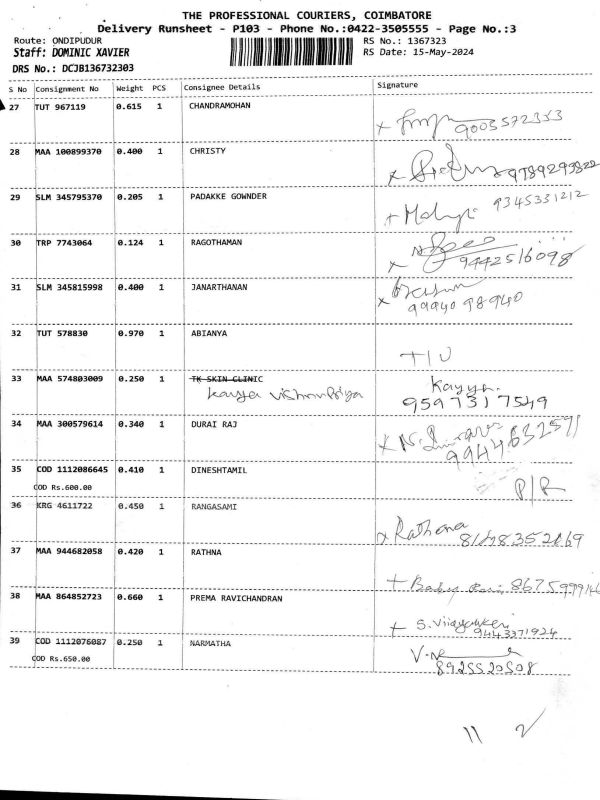 THE PROFESSIONAL COURIERS, COIMBATORE
Delivery Runsheet - P103 - Phone No.:0422-3505555 - Page No.:3
Route: ONDIPUDUR RS No.: 1367323
Staff: DOMINIC XAVIER RS Date: 15-May-2024
DRS No.: DCJB136732303
S No Consignment No Weight PCS Consignee Details Signature
27 TUT 967119 0.615 1 CHANDRAMOHAN
9003572353
28 MAA 100899370 0.400 1 CHRISTY
9789293822
29 SLM 345795370 0.205 1 PADAKKE GOWNDER
9345331212
30 TRP 7743064 0.124 1 RAGOTHAMAN
9442516098
31 SLM 345815998 0.400 1 JANARTHANAN
99940 98940
32 TUT 578830 0.970 1 ABIANYA
33 MAA 574803009 0.250 1 TK SKIN CLINIC Kayya.
9597317549
34 MAA 300579614 0.340 1 DURAI RAJ
9944632571
35 COD 1112086645 0.410 1 DINESHTAMIL
COD Rs.600.00 P/R
36 KRG 4611722 0.450 1 RANGASAMI
Rathana
37 MAA 944682058 0.420 1 RATHNA
Baby
38 MAA 864852723 0.660 1 PREMA RAVICHANDRAN
9443371924
39 COD 1112076087 0.250 1 NARMATHA
COD Rs.650.00 8925520508
11 2